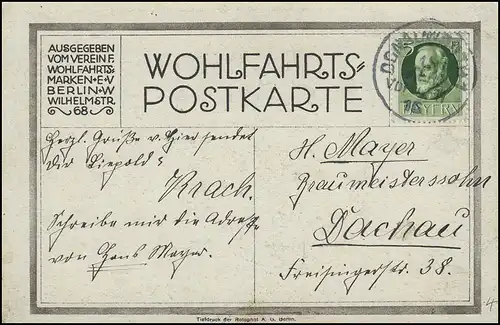 AUSGEGEBEN
VOM VEREIN F.
WOHLFAHRTS-
MARKEN•E•V
BERLIN•W
WILHELMSTR.
68
WOHLFAHRTS=
POSTKARTE
5
BAYERN
Herzl. Grüße v. Hier sendet
Dir Liepold
Krach.
Schreibe mir die Adresse
von Hans Mayer.
H. Mayer
Braumeisterssohn
Dachau
Freisingerstr. 38.
Tiefdruck der Rotophot A. G. Berlin.
4